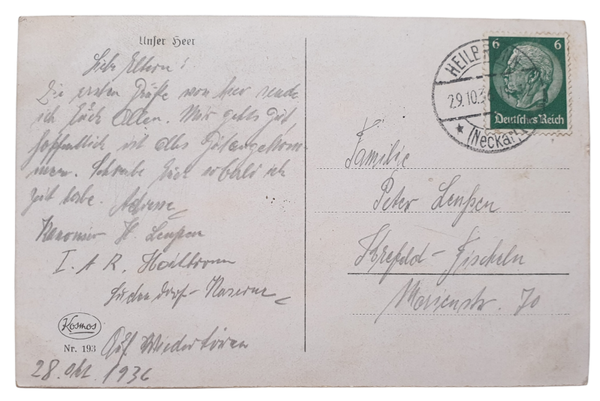 Unser Heer
Liebe Eltern!
Die ersten Grüße von hier sende
ich Euch Allen. Mir gehts gut
hoffentlich ist alles
Schreibe Euch sobald ich
Zeit habe. Adresse
Kanonier H. Lenßen
I. A R. Heilbronn
Kaserne
Auf Wiederhören
28. Okt. 1936
Kosmos
Nr. 193
HEILB
29.10.3
(Neckar)
6 6
Deutsches Reich
Familie
Peter Lenßen
Krefeld-Fischeln
Marienstr. 70